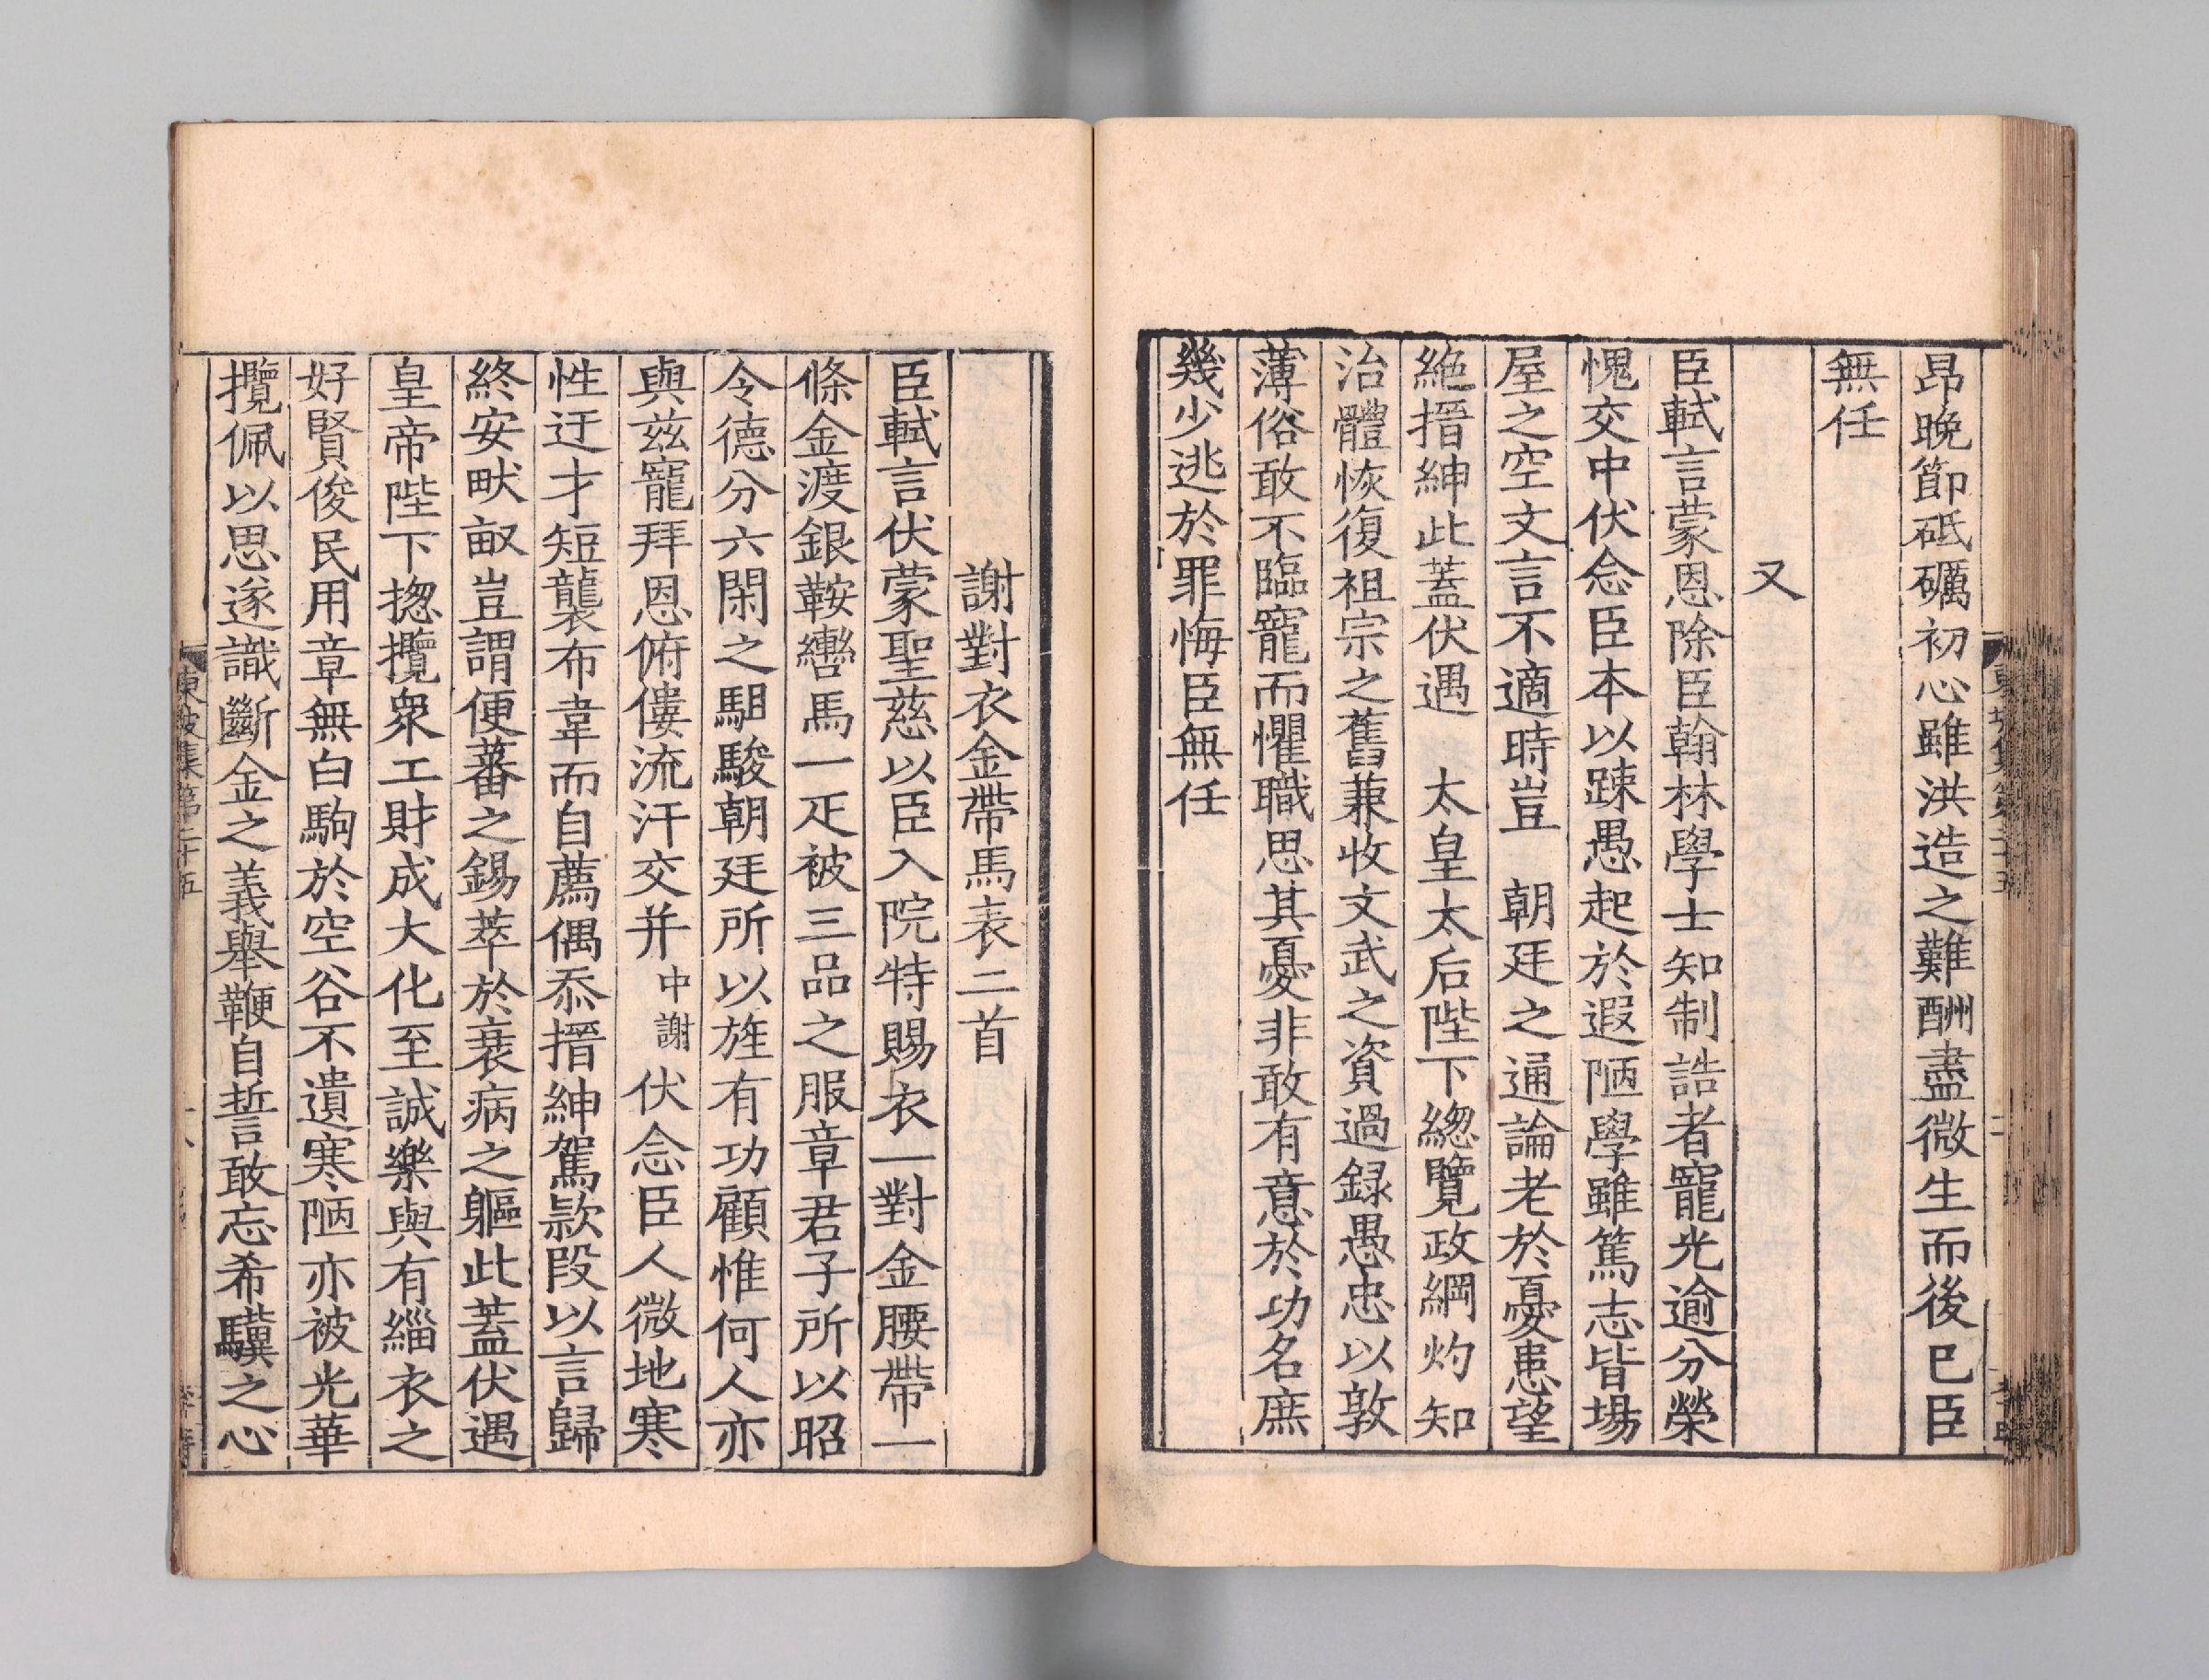 昂晚節砥礪初心雖洪造之難酬盡微生而後已臣
無任
又
臣軾言蒙恩除臣翰林學士知制誥者寵光逾分榮
愧交中伏念臣本以踈愚起於遐陋學雖篤志皆場
屋之空文言不適時豈　朝廷之通論老於憂患望
絶搢紳此蓋伏遇　太皇太后陛下緫覽政綱灼知
治體恢復祖宗之舊兼收文武之資過録愚忠以敦
薄俗敢不臨寵而懼職思其憂非敢有意於功名庶
幾少逃於罪悔臣無任
謝對衣金帶馬表二首
臣軾言伏蒙聖慈以臣入院特賜衣一對金腰帶一
條金渡銀鞍轡馬一疋被三品之服章君子所以昭
令德分六閑之駔駿朝廷所以旌有功顧惟何人亦
與兹寵拜恩俯僂流汗交并中謝伏念臣人微地寒
性迂才短襲布韋而自薦偶忝搢紳駕款段以言歸
終安畎畝豈謂便蕃之錫萃於衰病之軀此蓋伏遇
皇帝陛下揔攬衆工財成大化至誠樂與有緇衣之
好賢俊民用章無白駒於空谷不遺寒陋亦被光華
攬佩以思遂識斷金之義舉鞭自誓敢忘希驥之心
東坡集第二十五